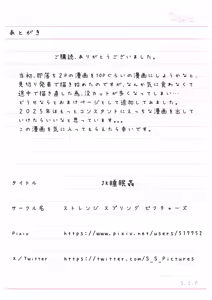 あとがき
ご購読、ありがとうございました。
当初、即落ち2Pの漫画を10Pぐらいの漫画にしようかなと、
見切り発車で描き始めたのですが、なんか気に食わなくて
途中で描き直した為、没カットが多くなってしまい…
どうせならとおまけページとして追加してみました。
2025年はもっとコンスタントにえっちな漫画を出して
いけたらいいなと思っています。。。
この漫画を気に入ってもらえたら幸いです。
タイトル JK睡眠姦
サークル名 ストレンジ スプリング ピクチャーズ
Pixiv https://www.pixiv.net/users/517952
X/Twitter https://twitter.com/S_S_Pictures